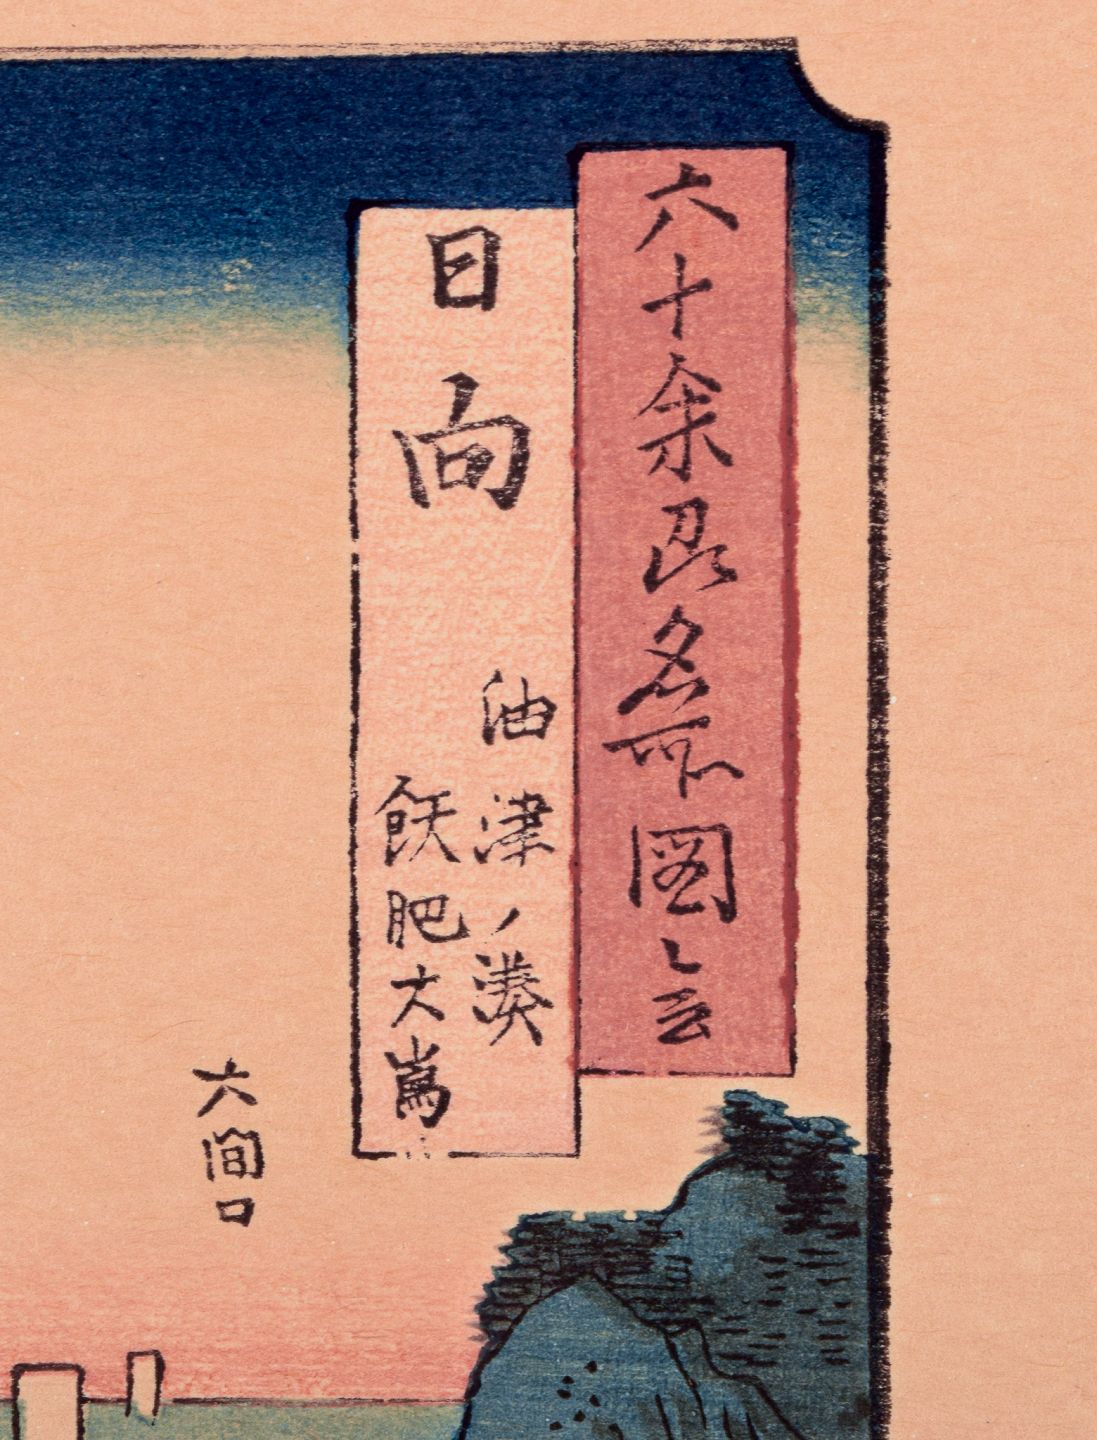 六十余州名所図会
日向
油津ノ湊
飫肥大嶌
大間口